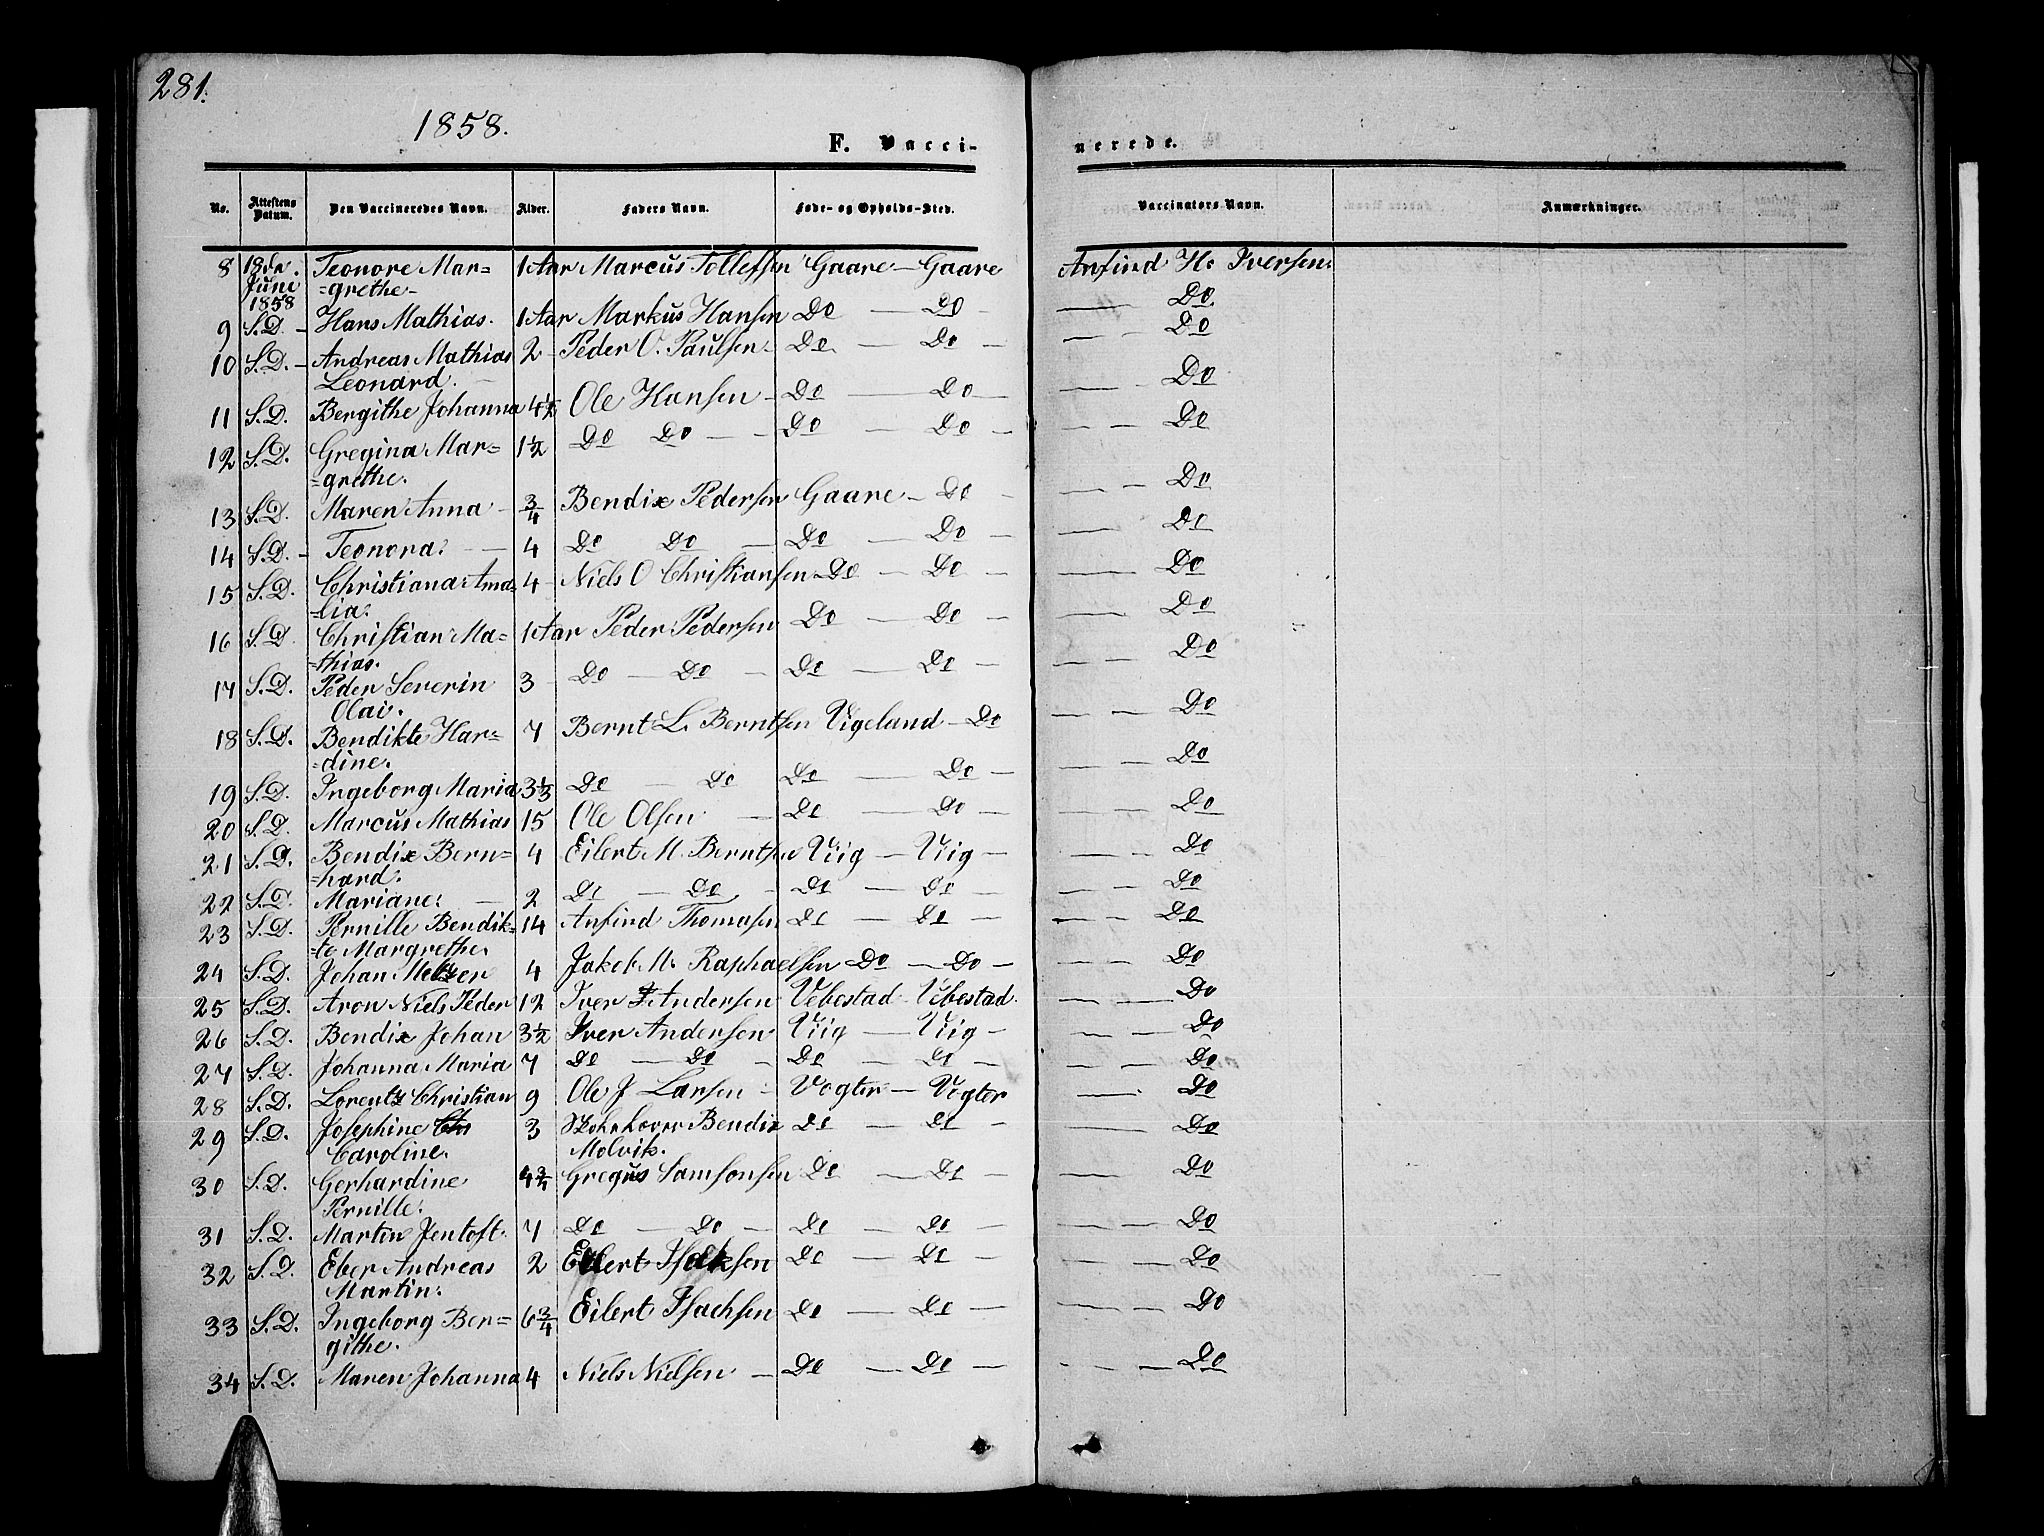 281.
1858.
F. Vacci-
nerede.
No. Attestens Datum. Den Vaccineredes Navn. Alder. Faders Navn. Føde- og Opholds-Sted. Vaccinatørs Navn. Anmærkninger.
8 18de Juni 1858 Teonore Mar= 1 Aar Marcus Tollefsen Gaare — Gaare Anfind H. Iversen.
=grethe — Do
9 S.D. — Hans Mathias. 1 Aar Markus Hansen Do — Do — — Do
10 S.D. — Andreas Mathias 2 — Peder O. Paulsen — Do — Do — — Do
Leonard.
11 S.D. Bergithe Johanna 4½ Ole Hansen — Do — Do — — Do
12 S.D. Gregina Mar= 1½ Do Do — — Do — Do — — Do
=grethe.
13 S.D. Maren Anna — ¾ Bendix Pedersen Gaare — Do — — Do
14 S.D. — Teonora. — 4 Do Do — Do — Do — — Do
15 S.D. Christiana Ama= 4 — Niels O Christiansen Do — Do — — Do
lia.
16 S.D. Christian Ma= 1 Aar Peder Pedersen Do — Do — — Do
=thias.
17 S.D. Peder Severin 3 Do — Do — Do — Do — — Do
Olai.
18 S.D. Bendikte Har= 7 Bernt L. Berntsen Vigeland — Do — — Do
=dine.
19 S.D. Ingeborg Maria 3⅓ Do — Do Do — Do — — Do
20 S.D. Marcus Mathias 15 Ole Olsen — Do — Do — — Do
21 S.D. Bendix Bern= 4 Eilert M. Berntsen Viig — Viig — — Do
=hard.
22 S.D. Mariane. — 2 Do — Do — Do — Do — — Do
23 S.D. Pernille Bendik= 14 Anfind Thomasen Do — Do — — Do
=te Margrethe.
24 S.D. Johan Metzer 4 Jakob M. Raphaelsen Do — Do — — Do
25 S.D. Aron Niels Peder 12 Iver Andersen Vebestad — Vebestad. — Do
26 S.D. Bendix Johan 3½ Iver Andersen Viig — Viig — — Do
27 S.D. Johanna Maria 7 Do — Do — Do — Do — — Do
28 S.D. Lorentz Christian 9 Ole J Larsen — Vogter — Vogter — Do
29 S.D. Josephine 3 Bendix Do — Do — — Do
Caroline. Molvik.
30 S.D. Gerhardine 4¾ Gregus Samsonsen Do — Do — — Do
Pernille.
31 S.D. Martin Jentoft. 7 Do — Do — Do — Do — — Do
32 S.D. Eber Andreas 2 Eilert Isaksen Do — Do — — Do
Martin.
33 S.D. Ingeborg Ber= 6¾ Eilert Isachsen Do — Do — — Do
githe.
34 S.D. Maren Johanna 4 Niels Nielsen — Do — Do — — Do